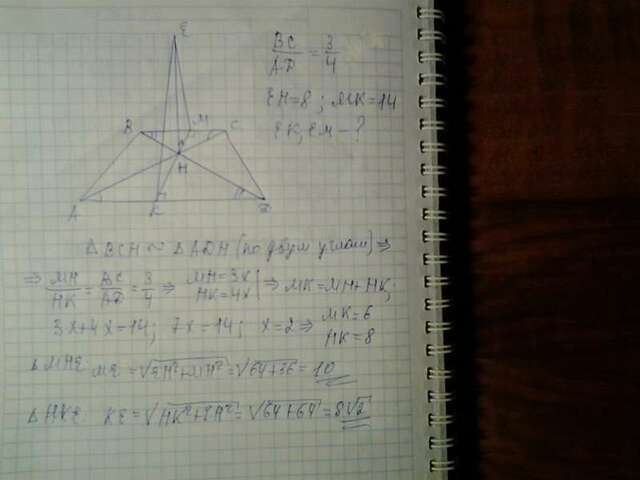 E
BC/AD = 3/4
EH=8; MK=14
EK, EM - ?
B M C
H
A K D
△BCH ∾ △ADH (по двум углам) ⇒
⇒ MH/HK = BC/AD = 3/4 ⇒ MH=3x HK=4x | ⇒ MK=MH+HK;
3x+4x=14; 7x=14; x=2 ⇒ MK=6 HK=8
△MHE ME=√EH²+MH²=√64+36=10
△HKE KE=√HK²+EH²=√64+64=8√2